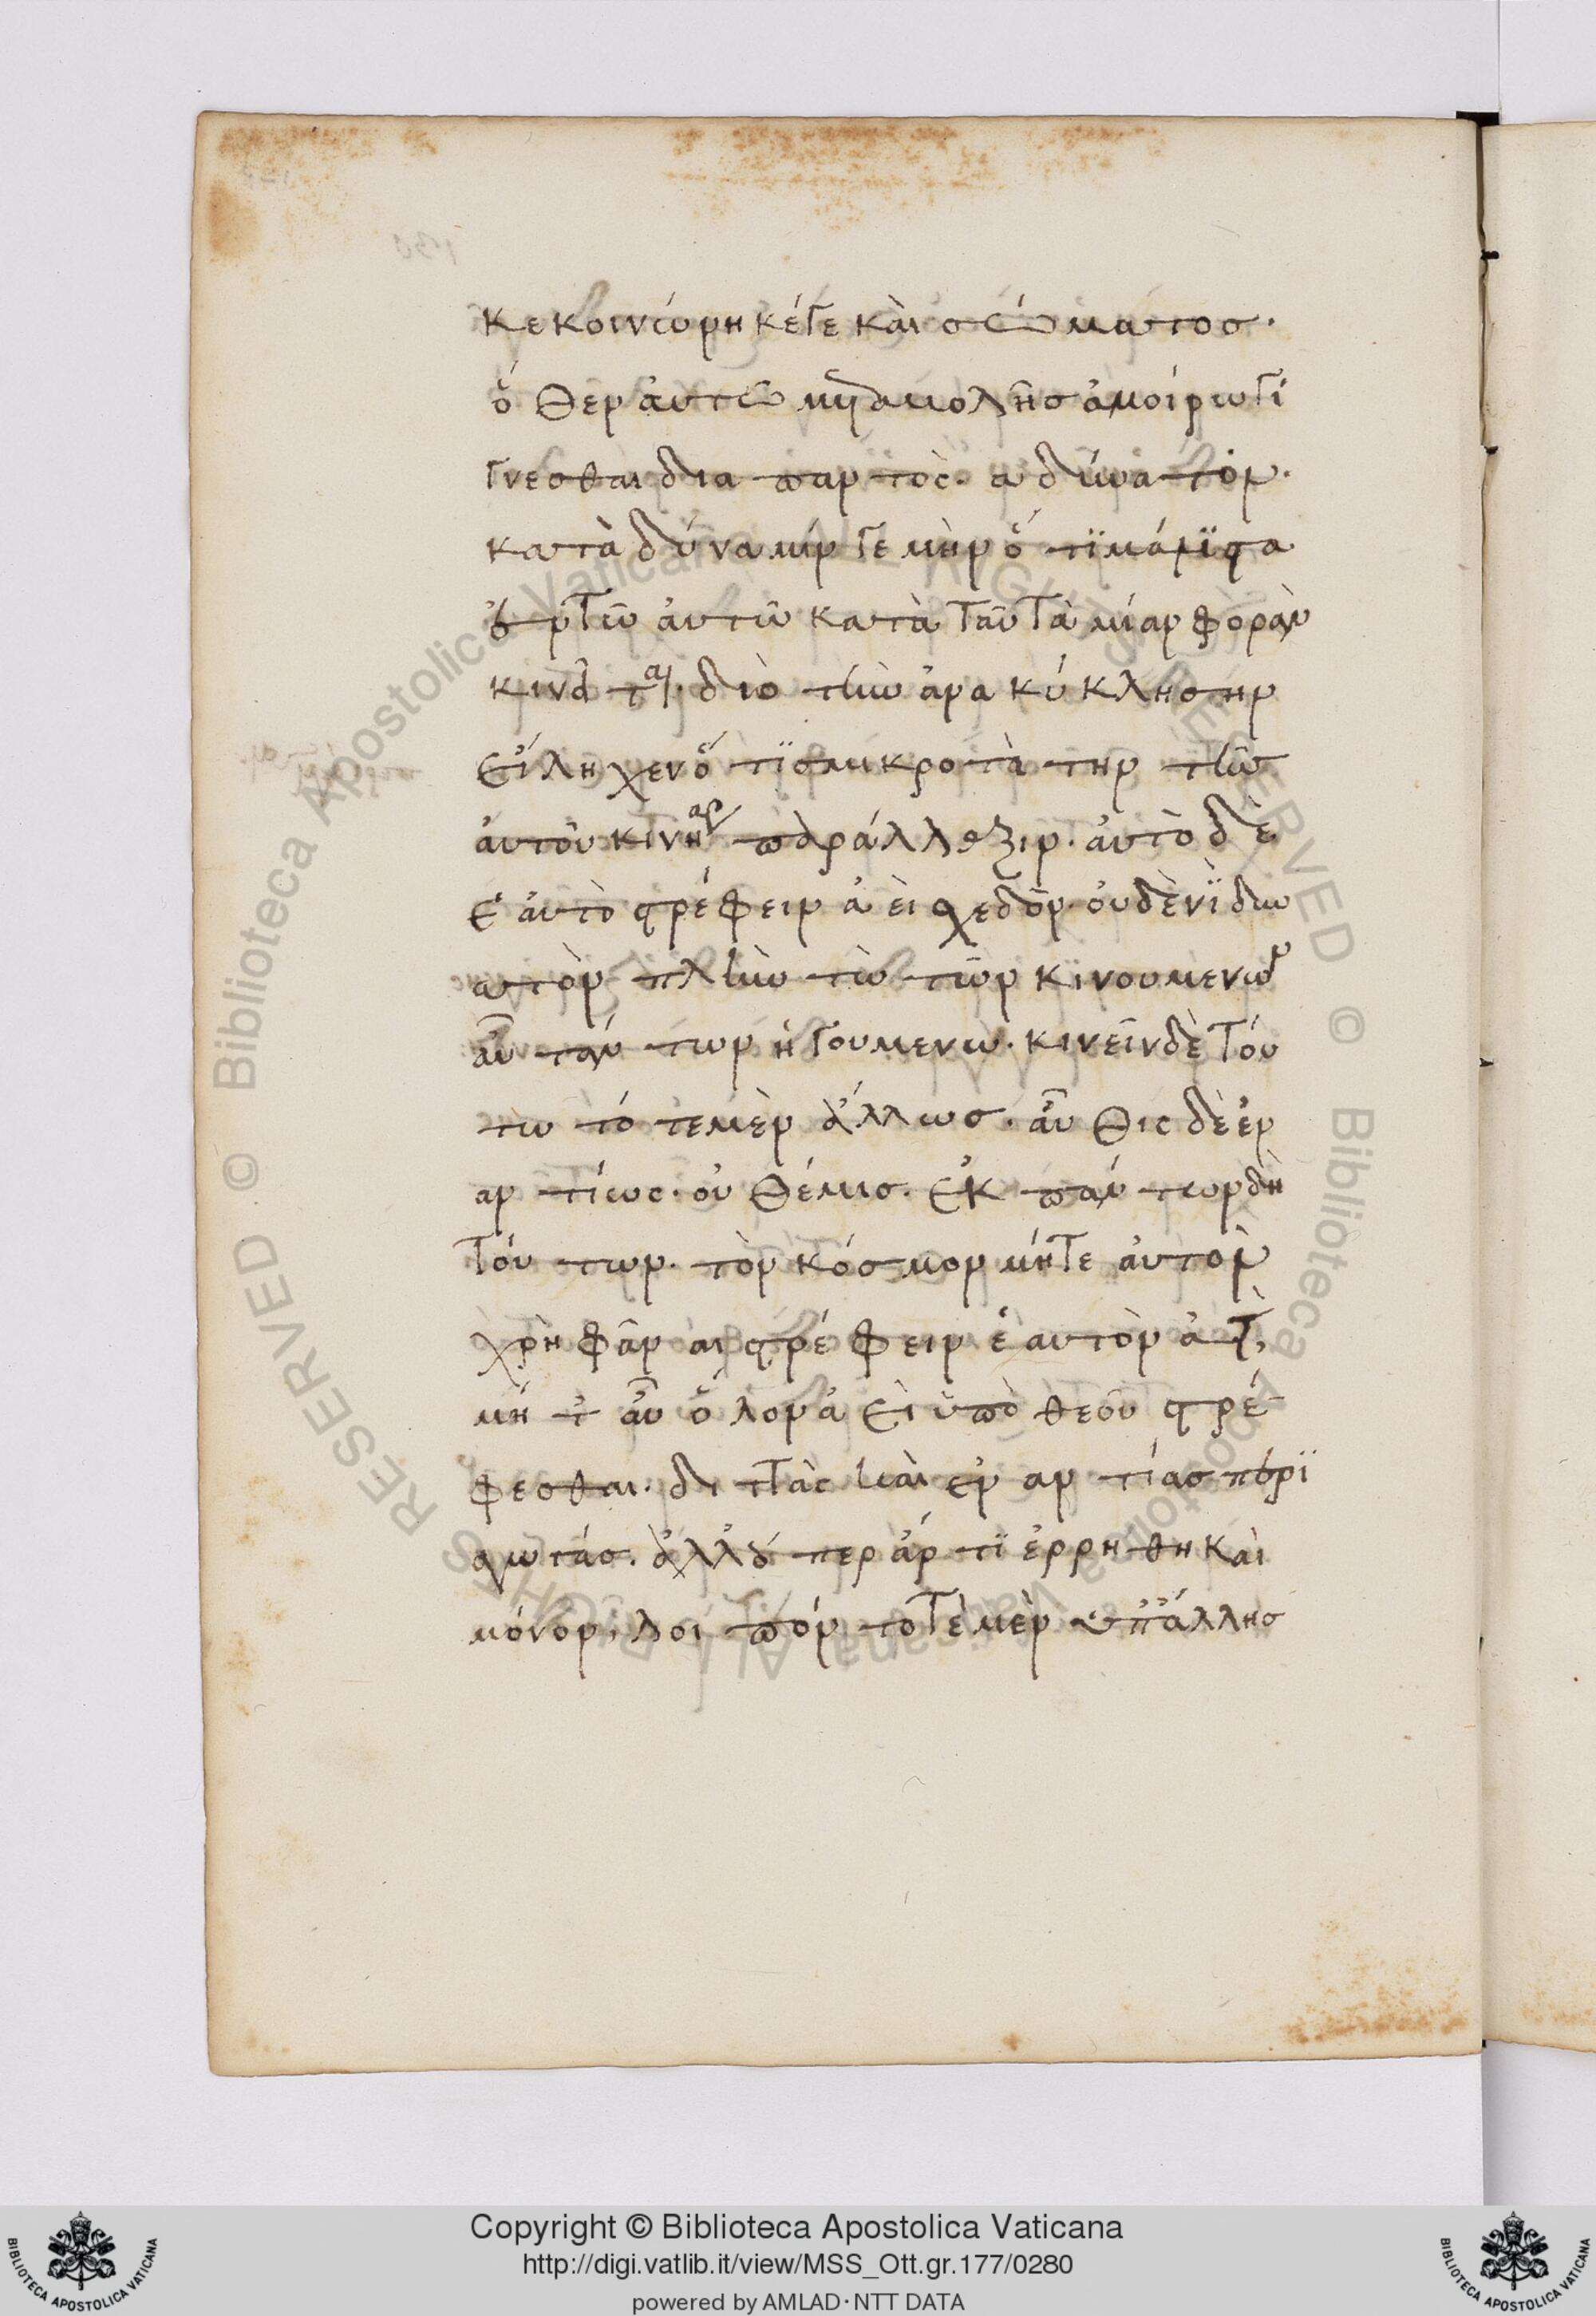 κεκοινώνηκέ γε καὶ σώματος·
ὅθεν αὐτῷ μεταβολῆς ἀμοίρῳ γί
γνεσθαι διὰ παντὸς· ἀδύνατον·
κατὰ δύναμίν γε μὴν ὅτι μάλιστα
ἐν τῷ αὐτῷ κατὰ ταῦτὰ μίαν φορὰν
κινεῖται· διὸ τὴν ἀνακύκλησιν
εἴληχεν ὅτι σμικροτάτην τῆς
αὐτοῦ κινήσεως παράλλαξιν· αὐτὸ δὲ
ἑαυτὸ στρέφειν ἀεὶ σχεδὸν οὐδενὶ δυν
ατὸν πλὴν τῷ τῶν κινουμένων
αὖ πάντων ἡγουμένῳ· κινεῖν δὲ τού
τῳ τότε μὲν ἄλλως· αὖθις δὲ ἐν
αντίως· οὐ θέμις· ἐκ πάντων δὴ
τούτων· τὸν κόσμον μήτε αὐτὸν
χρὴ φάναι στρέφειν ἑαυτὸν ἀεὶ,
μήτ' αὖ ὅλον ἀεὶ ὑπὸ θεοῦ στρέ
φεσθαι· διττὰς καὶ ἐναντίας περι
αγωγάς· ἀλλ' ὅπερ ἄρτι ἐρρήθη καὶ
μόνον, λοιπόν· τοτὲ μὲν ὑπ' ἄλλης
Copyright © Biblioteca Apostolica Vaticana
http://digi.vatlib.it/view/MSS_Ott.gr.177/0280
powered by AMLAD·NTT DATA
BIBLIOTECA APOSTOLICA VATICANA
BIBLIOTECA APOSTOLICA VATICANA